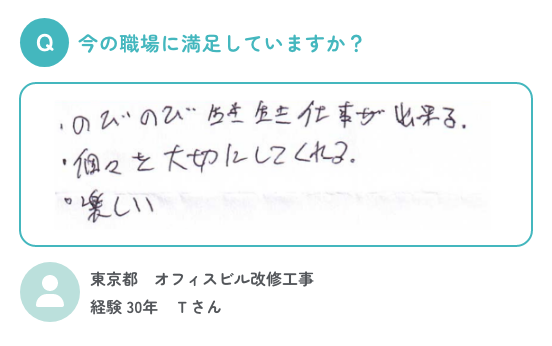 Q 今の職場に満足していますか？
・のびのび生き生き仕事が出来る.
・個々を大切にしてくれる.
・楽しい
東京都　オフィスビル改修工事
経験 30年　Tさん